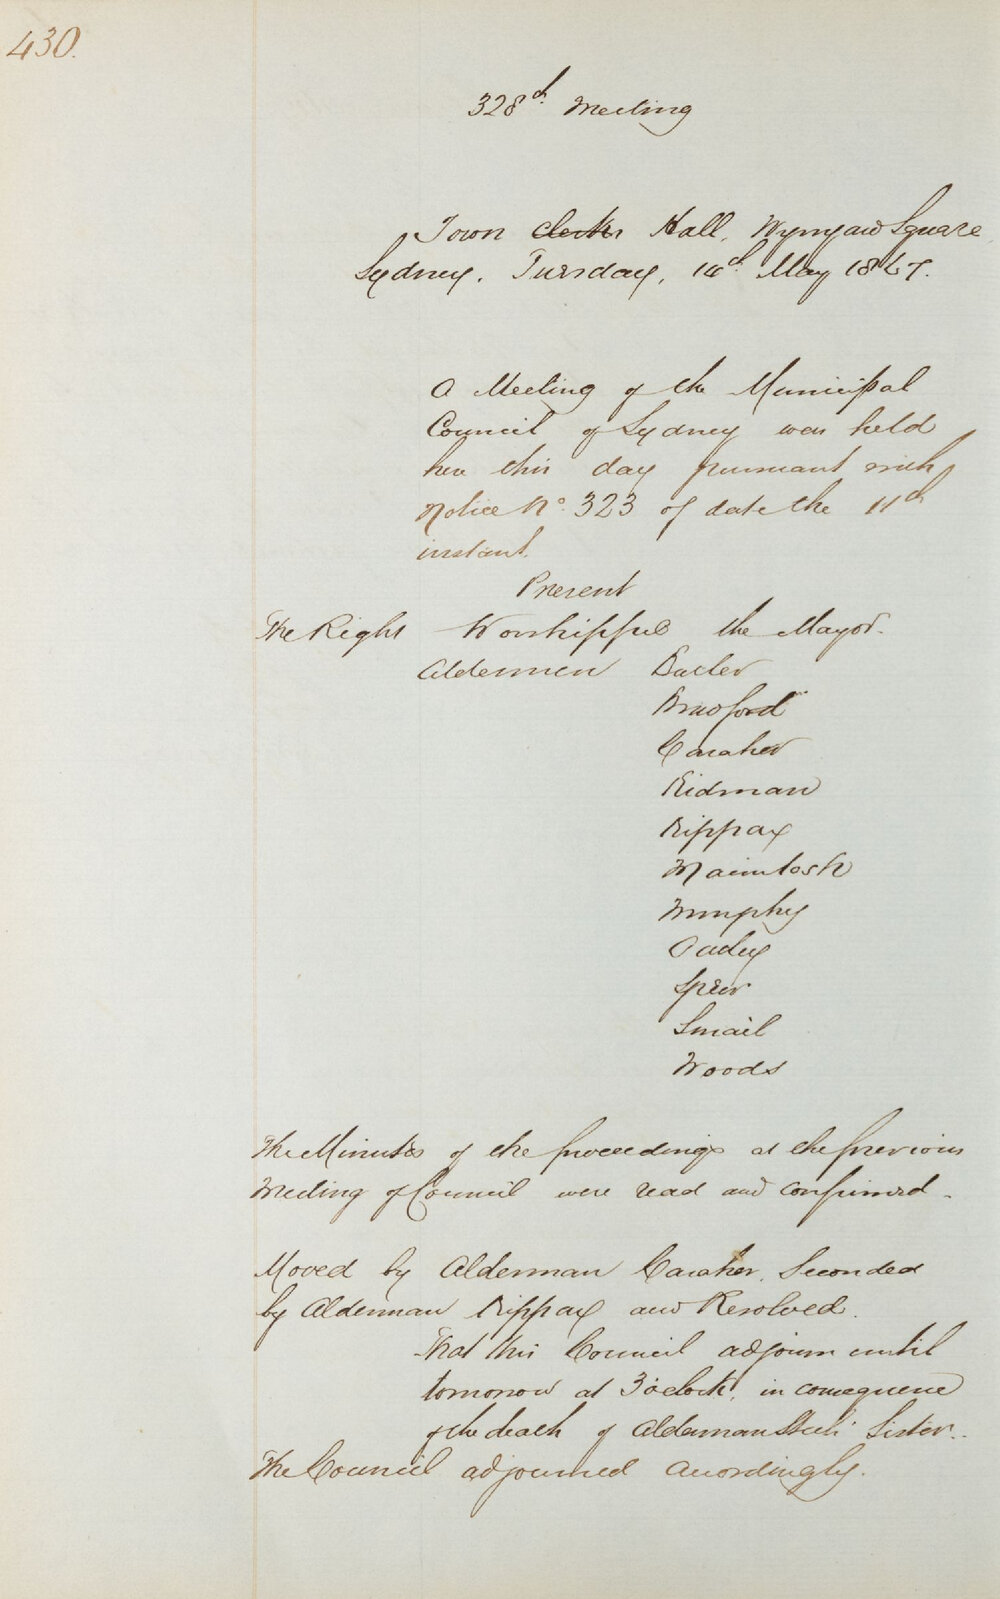 430.
328th Meeting
Town Clerks Hall, Wynyard Square
Sydney, Tuesday, 14th May 1867.
A Meeting of the Municipal
Council of Sydney was held
here this day pursuant with
Notice No. 323 of date the 11th
instant.
Present
The Right Worshipful the Mayor.
Aldermen Butler
Bradford
Caraher
Kidman
Kippax
Macintosh
Murphy
Oatley
Speer
Smail
Woods
The Minutes of the proceedings at the previous
Meeting of Council were read and confirmed.
Moved by Alderman Caraher, Seconded
by Alderman Kippax and Resolved.
That this Council adjourn until
tomorrow at 3 o'clock, in consequence
of the death of Alderman Steel's Sister.
The Council adjourned accordingly.